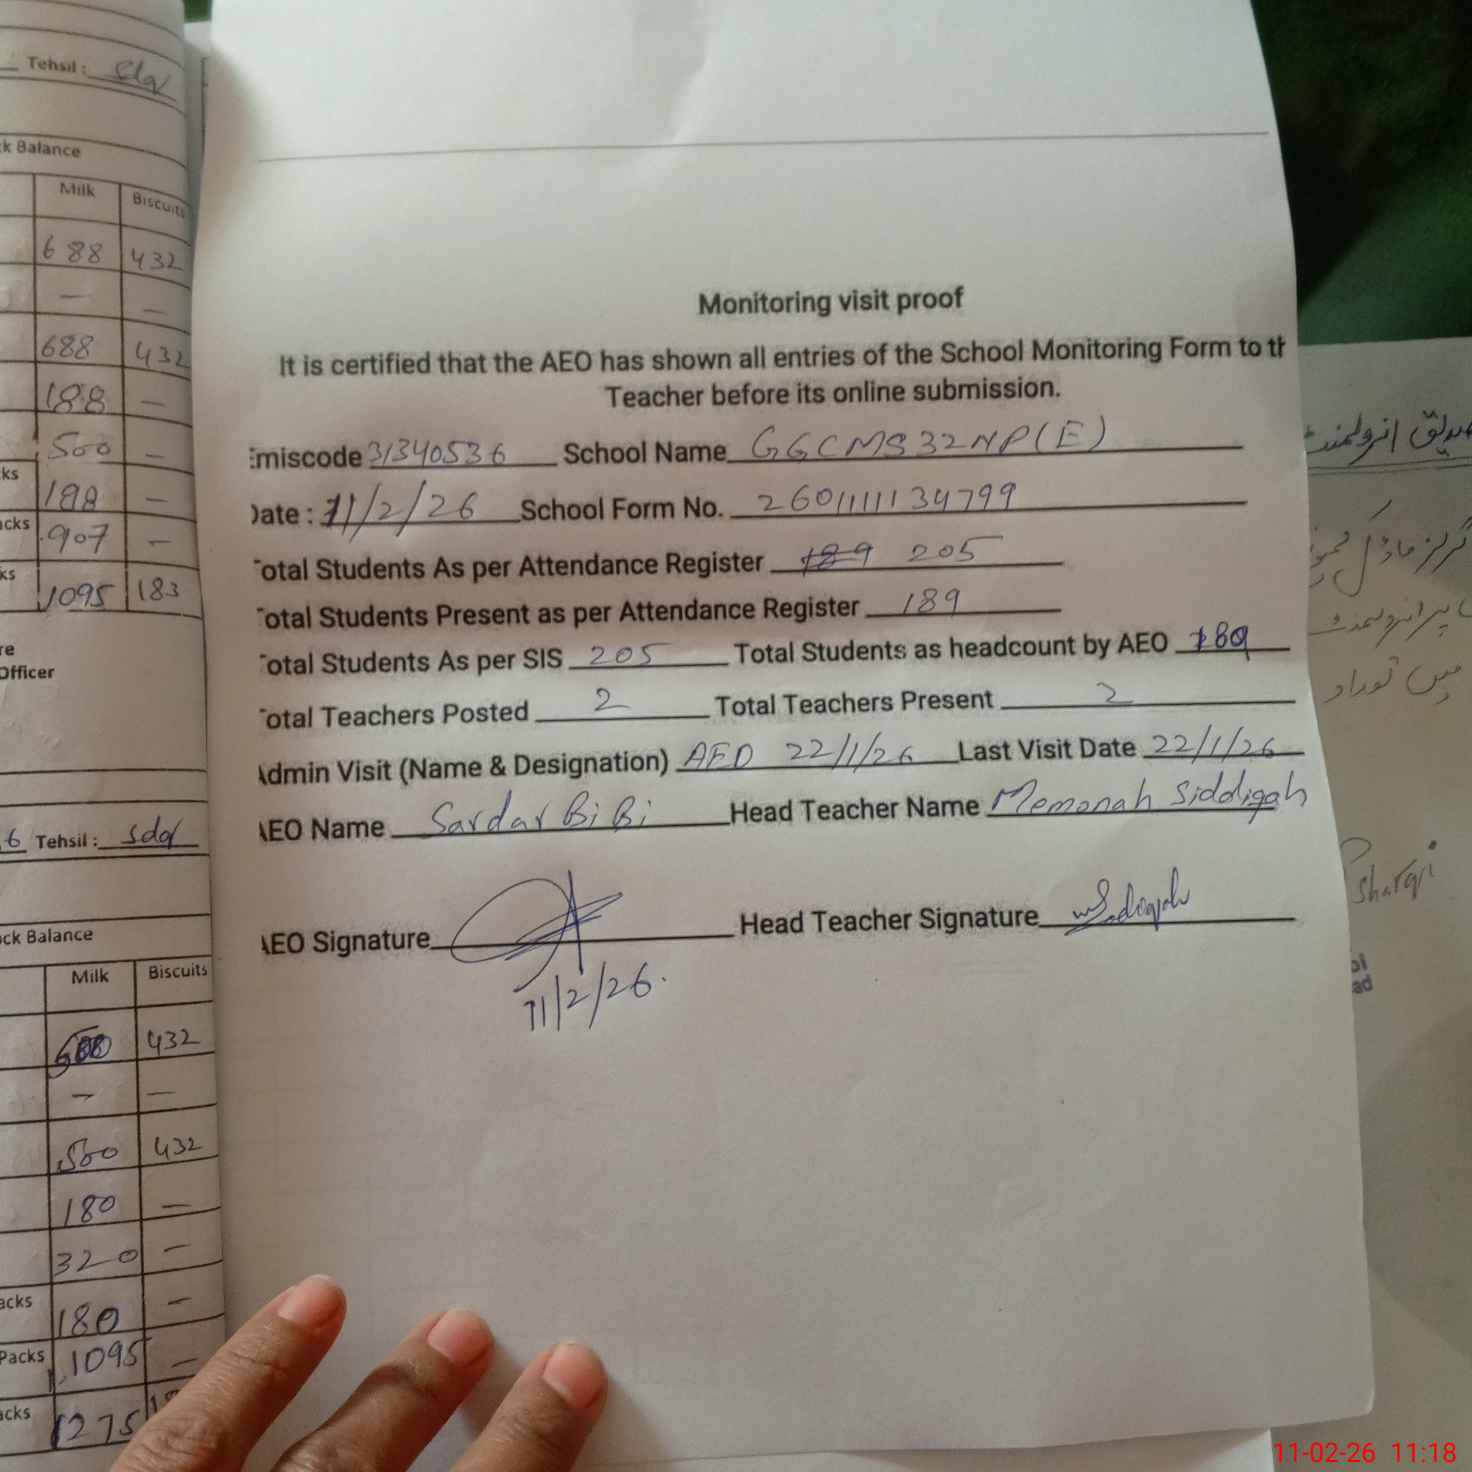 Tehsil : sdq
k Balance
Milk Biscuits
688 432
— —
688 432
188 —
500 —
ks 188 —
acks 907 —
ks 1095 183
re
Officer
6 Tehsil : sdq
ck Balance
Milk Biscuits
432
— —
500 432
180 —
320 —
acks 180 —
Packs 1095 —
acks 1275
Monitoring visit proof
It is certified that the AEO has shown all entries of the School Monitoring Form to th
Teacher before its online submission.
Emiscode 31340536 School Name GGCMS 32NP(E)
Date : 11/2/26 School Form No. 2601111134799
Total Students As per Attendance Register 189 205
Total Students Present as per Attendance Register 189
Total Students As per SIS 205 Total Students as headcount by AEO 189
Total Teachers Posted 2 Total Teachers Present 2
Admin Visit (Name & Designation) AEO 22/1/26 Last Visit Date 22/1/26
AEO Name Sardar Bi Bi Head Teacher Name Memonah Siddiqah
AEO Signature Head Teacher Signature
11/2/26.
تصدیق انرولمنٹ
گرلز ماڈل
میں تعداد
Sharqi
ol
ad
11-02-26 11:18